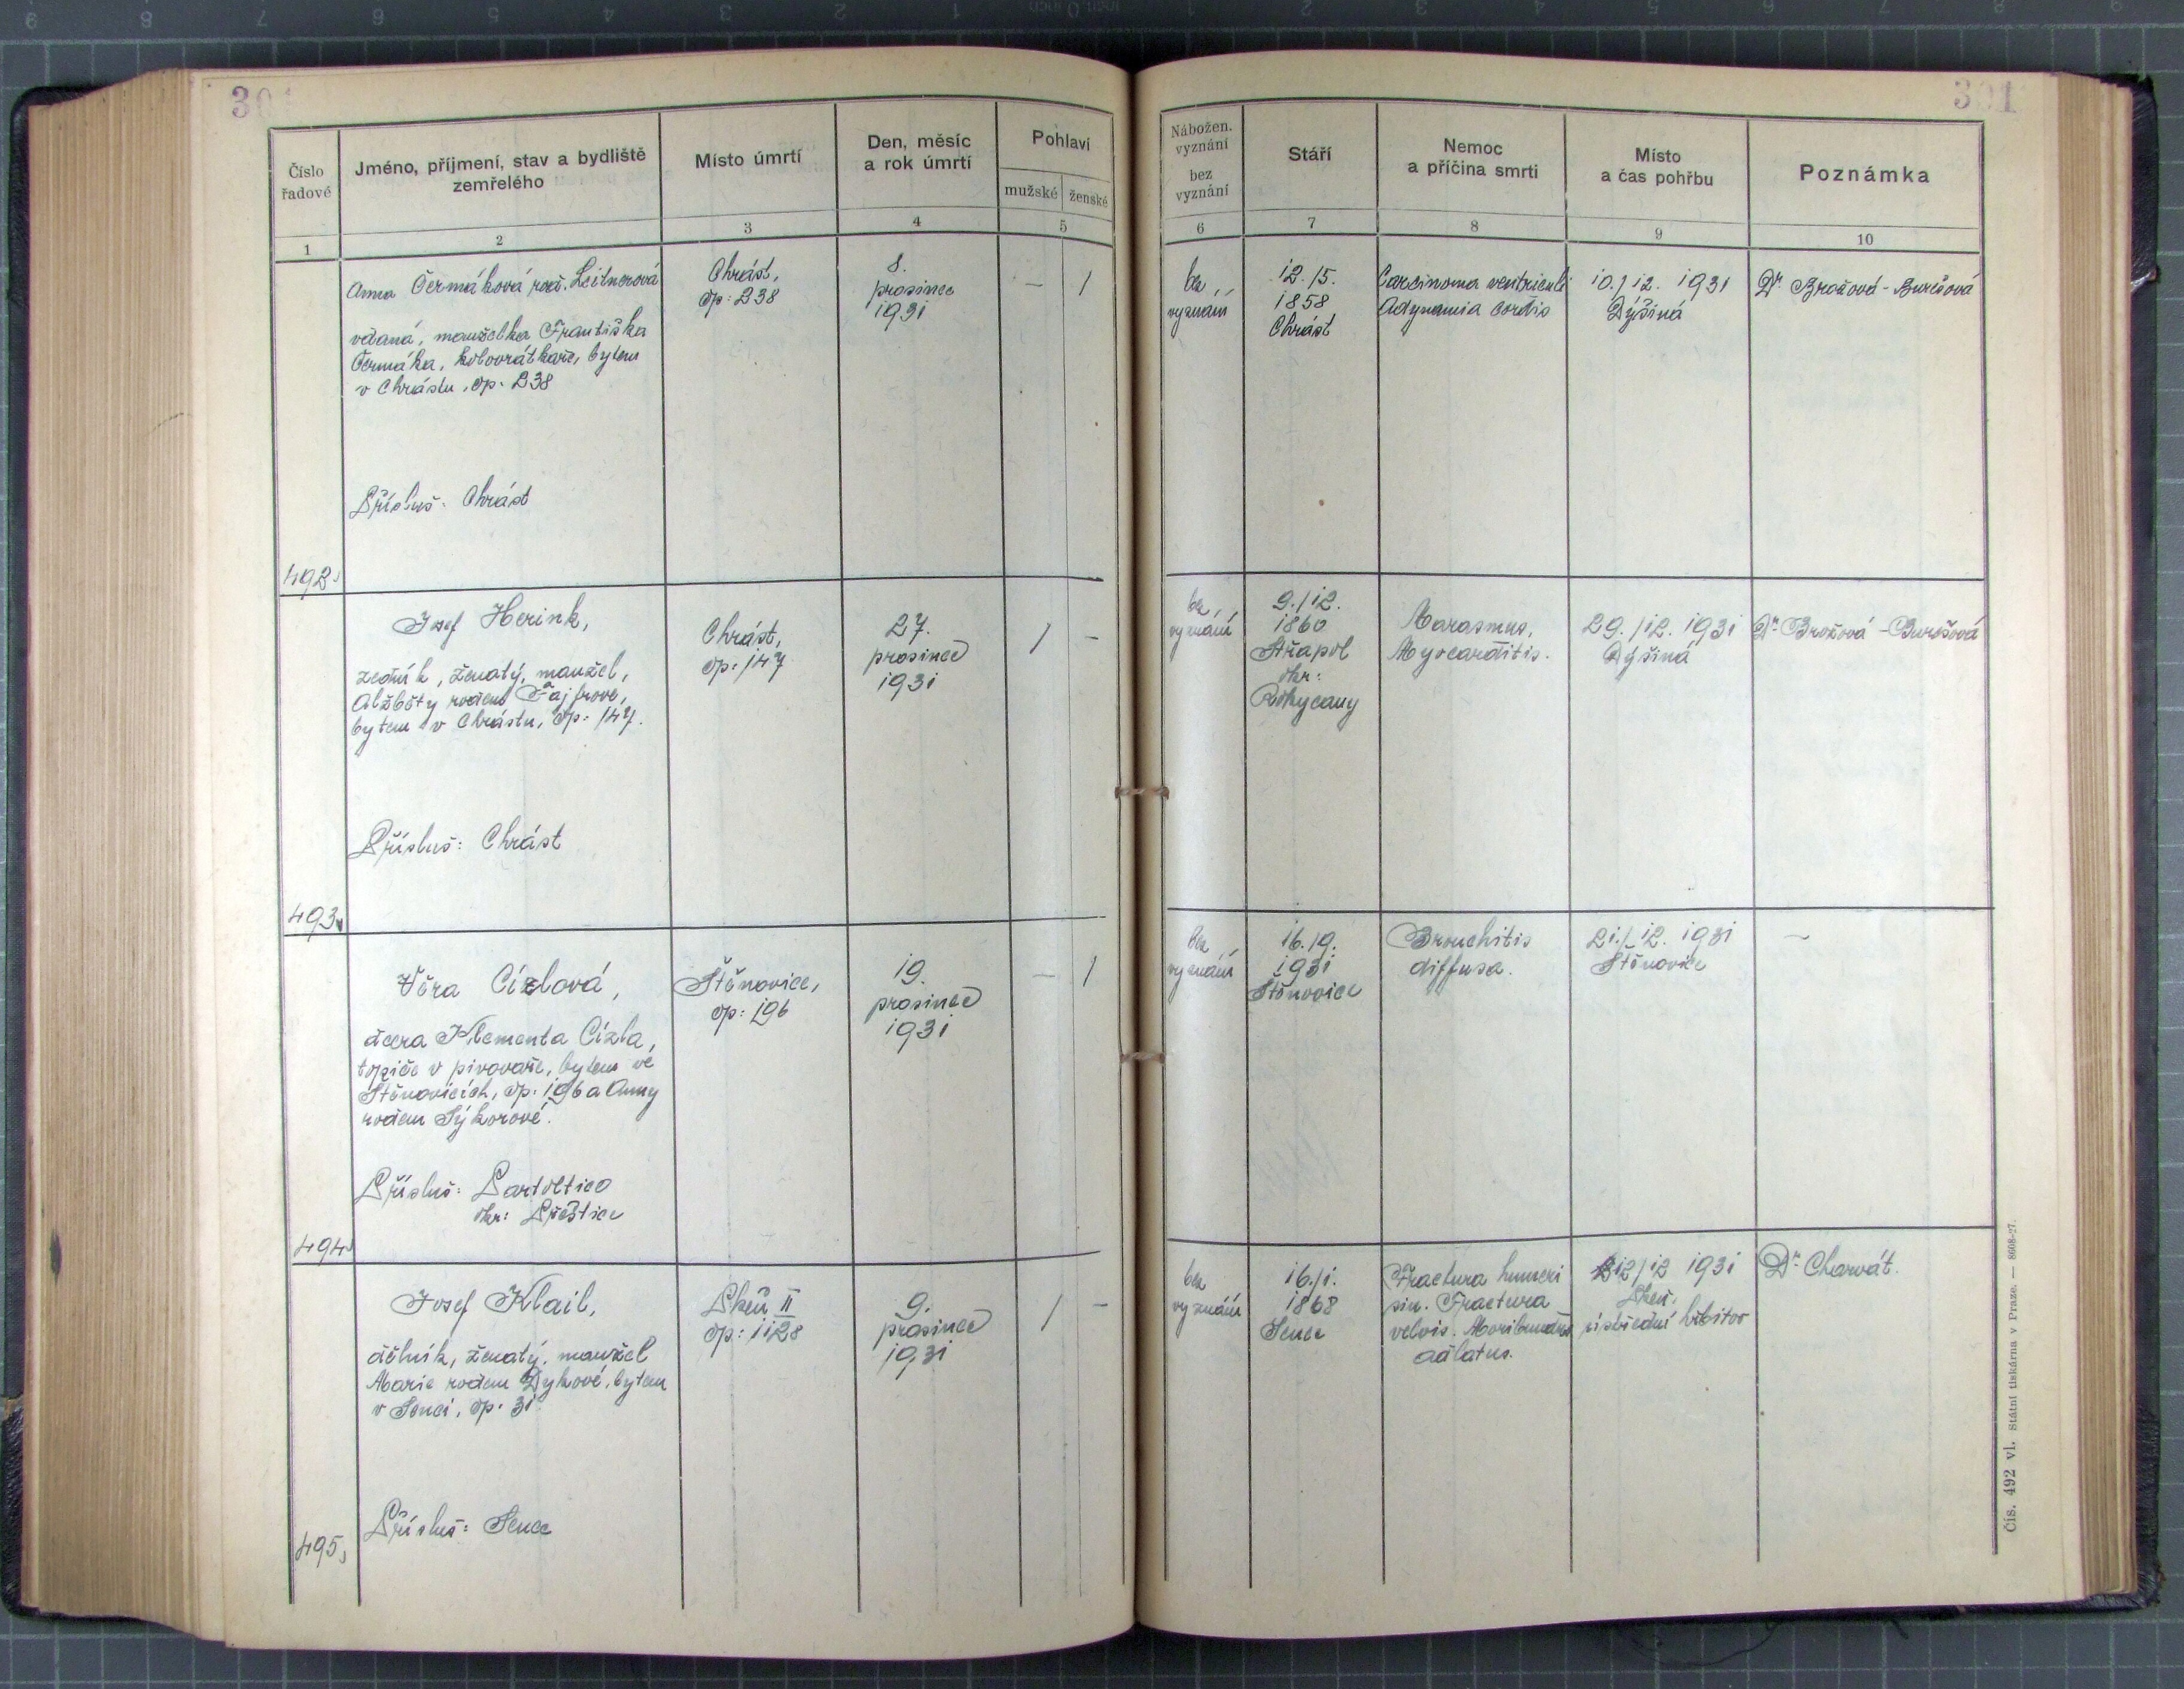 301
Číslo
řadové
Jméno, příjmení, stav a bydliště
zemřelého
Místo úmrtí
Den, měsíc
a rok úmrtí
Pohlaví
mužské ženské
Nábožen.
vyznání
bez
vyznání
Stáří
Nemoc
a příčina smrti
Místo
a čas pohřbu
Poznámka
1 2 3 4 5 6 7 8 9 10
492
Anna Čermáková roz. Leitnerová
vdaná, manželka Františka
Čermáka, kolovrátkaře, bytem
v Chrástu, čp. 238
Přísluš: Chrást
Chrást,
čp: 238
8.
prosince
1931
— 1
bez
vyznání
12./5.
1858
Chrást
Carcinoma ventriculi
Adynamia cordis
10./12. 1931
Dýšiná
Dr. Brožová-Burešová
493
Josef Herink,
zedník, ženatý, manžel,
Alžběty rodem Fajfrové,
bytem v Chrástu, čp: 147.
Přísluš: Chrást
Chrást,
čp: 147
27.
prosince
1931
1 —
bez
vyznání
9./12.
1860
Střapol
okr:
Rokycany
Marasmus,
Myocarditis.
29./12. 1931
Dýšiná
Dr. Brožová-Burešová
494
Věra Cízlová,
dcera Klementa Cízla,
topiče v pivovaře, bytem ve
Štěnovicích, čp: 196 a Anny
rodem Sýkorové.
Přísluš: Partoltice
okr: Přeštice
Štěnovice,
čp: 196
19.
prosince
1931
— 1
bez
vyznání
16./9.
1931
Štěnovice
Bronchitis
diffusa.
21./12. 1931
Štěnovice
—
495
Josef Klail,
dělník, ženatý, manžel
Marie rodem Dykové, bytem
v Senci, čp. 31
Přísluš: Senec
Plzeň II
čp: 1128
9.
prosince
1931
1 —
bez
vyznání
16./1.
1868
Senec
Fractura humeri
sin. Fractura
velvis. Moribundus
adlatus.
12/12 1931
Plzeň,
ústřední hřbitov
Dr. Charvát.
301
Čís. 492 vl. Státní tiskárna v Praze. — 8608-27.